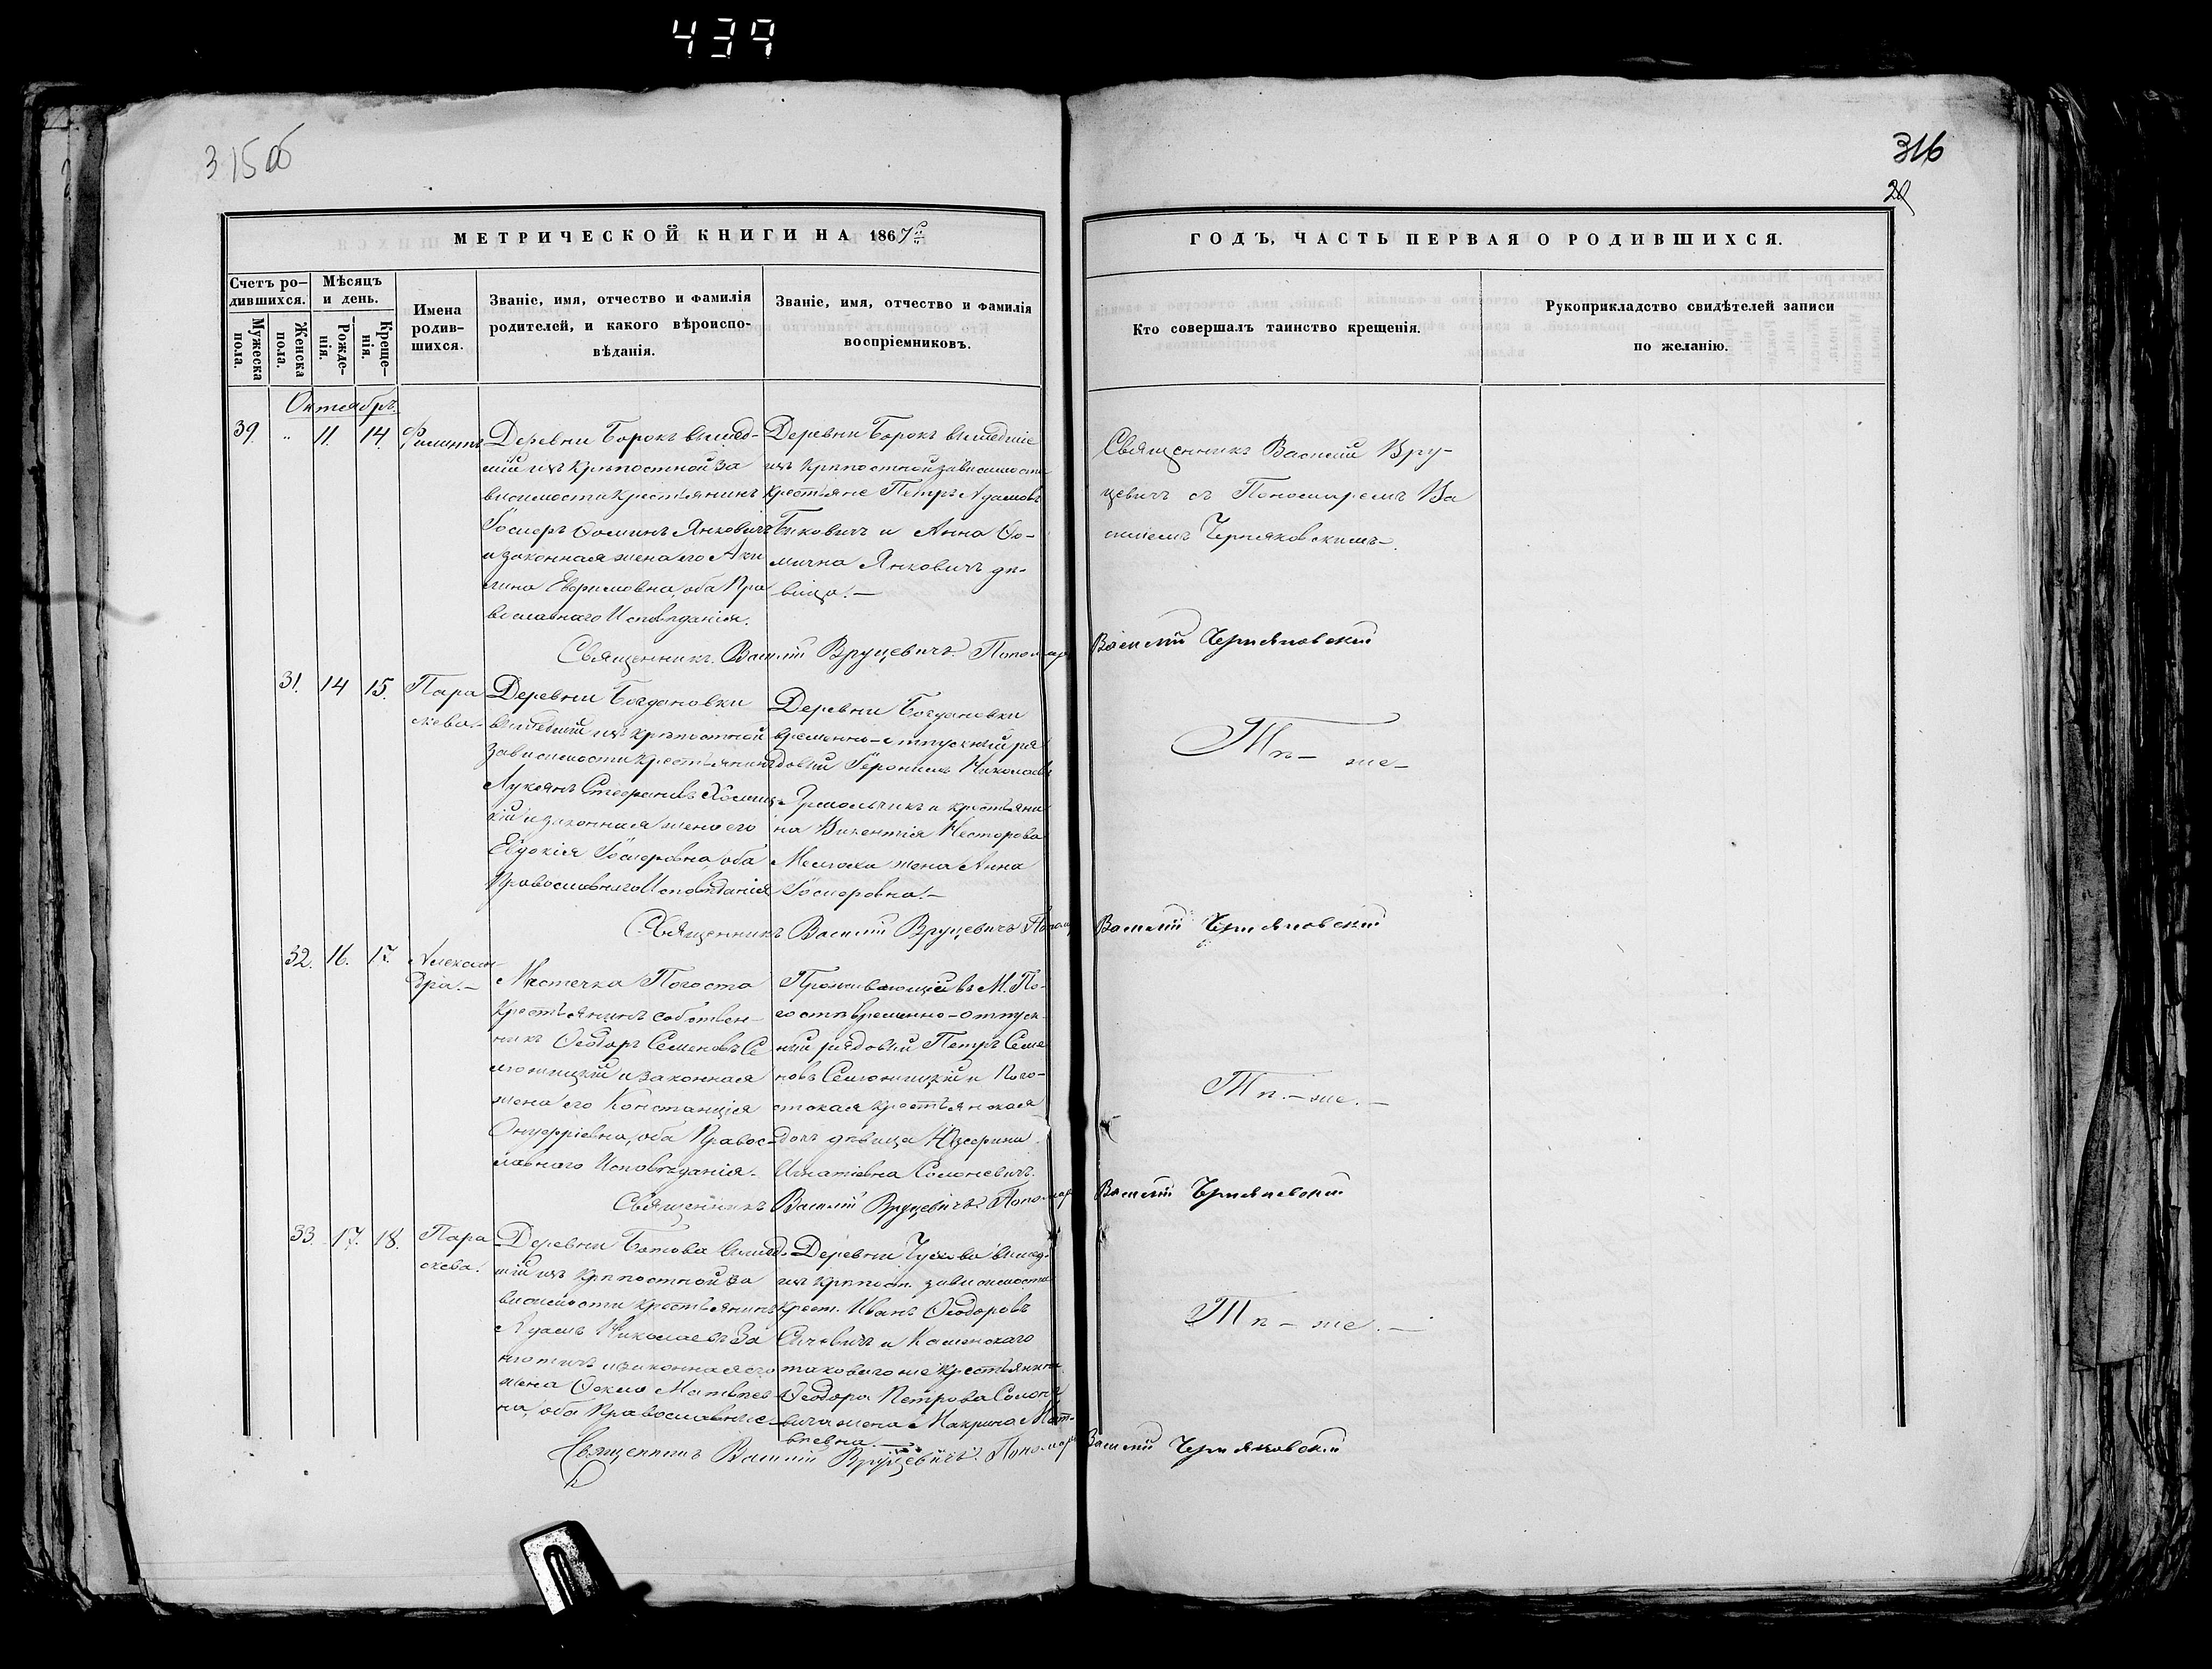 439
315об
316
20
МЕТРИЧЕСКОЙ КНИГИ НА 1867й
ГОДЪ, ЧАСТЬ ПЕРВАЯ О РОДИВШИХСЯ.
Счетъ ро-
дившихся.
Мужеска
пола.
Женска
пола.
Мѣсяцъ
и день.
Рожде-
нія.
Креще-
нія.
Имена
родив-
шихся.
Званіе, имя, отчество и фамилія
родителей, и какого вѣроиспо-
вѣданія.
Званіе, имя, отчество и фамилія
воспріемниковъ.
Кто совершалъ таинство крещенія.
Рукоприкладство свидѣтелей записи
по желанію.
Октябрь.
39. " 11. 14. Филиппъ
Деревни Борокъ вышед-
шій изъ крѣпостной за
висимости крестьянинъ
Іосифъ Ѳоминъ Янковичъ
и законная жена его Аки
лина Евфимовна, оба Пра
вославнаго Исповѣданія.
Деревни Борокъ вышедшіе
изъ крѣпостной зависимости
крестьяне Петръ Адамовъ
Янковичъ и Анна Ѳо-
мична Янковичъ дѣ-
вица.—
Священникъ Василій Вру-
цевичъ съ Пономаремъ Ва
силіемъ Черняковскимъ.
Священникъ Василій Вруцевичъ. Пономарь Василій Черняковскій
31. 14 15. Пара
скева.
Деревни Богдановки
вышедшій изъ крѣпостной
зависимости крестьянинъ
Лукіянъ Стефановъ
кій и законная жена его
Евдокія Іосифовна, оба
Православнаго Исповѣданія
Деревни Богдановки
временно-отпускной ря
довый Іеронимъ Николаевъ
Ярмольчикъ и крестьяни
на Викентія Несторова
жена Анна
Іосифовна.—
Тѣ-же-
Священникъ Василій Вруцевичъ Пономарь Василій Черняковскій
32. 16. 17. Алексан-
дра.—
Мѣстечка Погоста
Крестьянинъ собствен-
никъ Ѳеодоръ Семеновъ Се
и законная
жена его Констанція
Онуфріевна, оба Правос-
лавнаго Исповѣданія.
Проживающій въ М. По-
гостѣ временно-отпуск-
ный рядовый Петръ Семе
новъ и Пого-
стская крестьянская
дочь дѣвица Юзефина
Игнатіевна Солоневичъ.
Тѣ.-же.-
Священникъ Василій Вруцевичъ Пономарь Василій Черняковскій
33. 17. 18. Пара
скева.
Деревни вышед-
шій изъ крѣпостной за
висимости крестьянинъ
Адамъ Николаевъ За
и законная его
жена Ѳекла Матвѣев
на, оба Православные.—
Деревни вышед.
изъ крѣпост. зависимости
крест. Иванъ Ѳеодоровъ
и Каменскаго
таковаго же крестьянина
Ѳеодора Петрова Солоне
вича жена Макрина Мат-
вѣевна.—
Тѣ-же.—
Священникъ Василій Вруцевичъ. Пономарь Василій Черняковскій